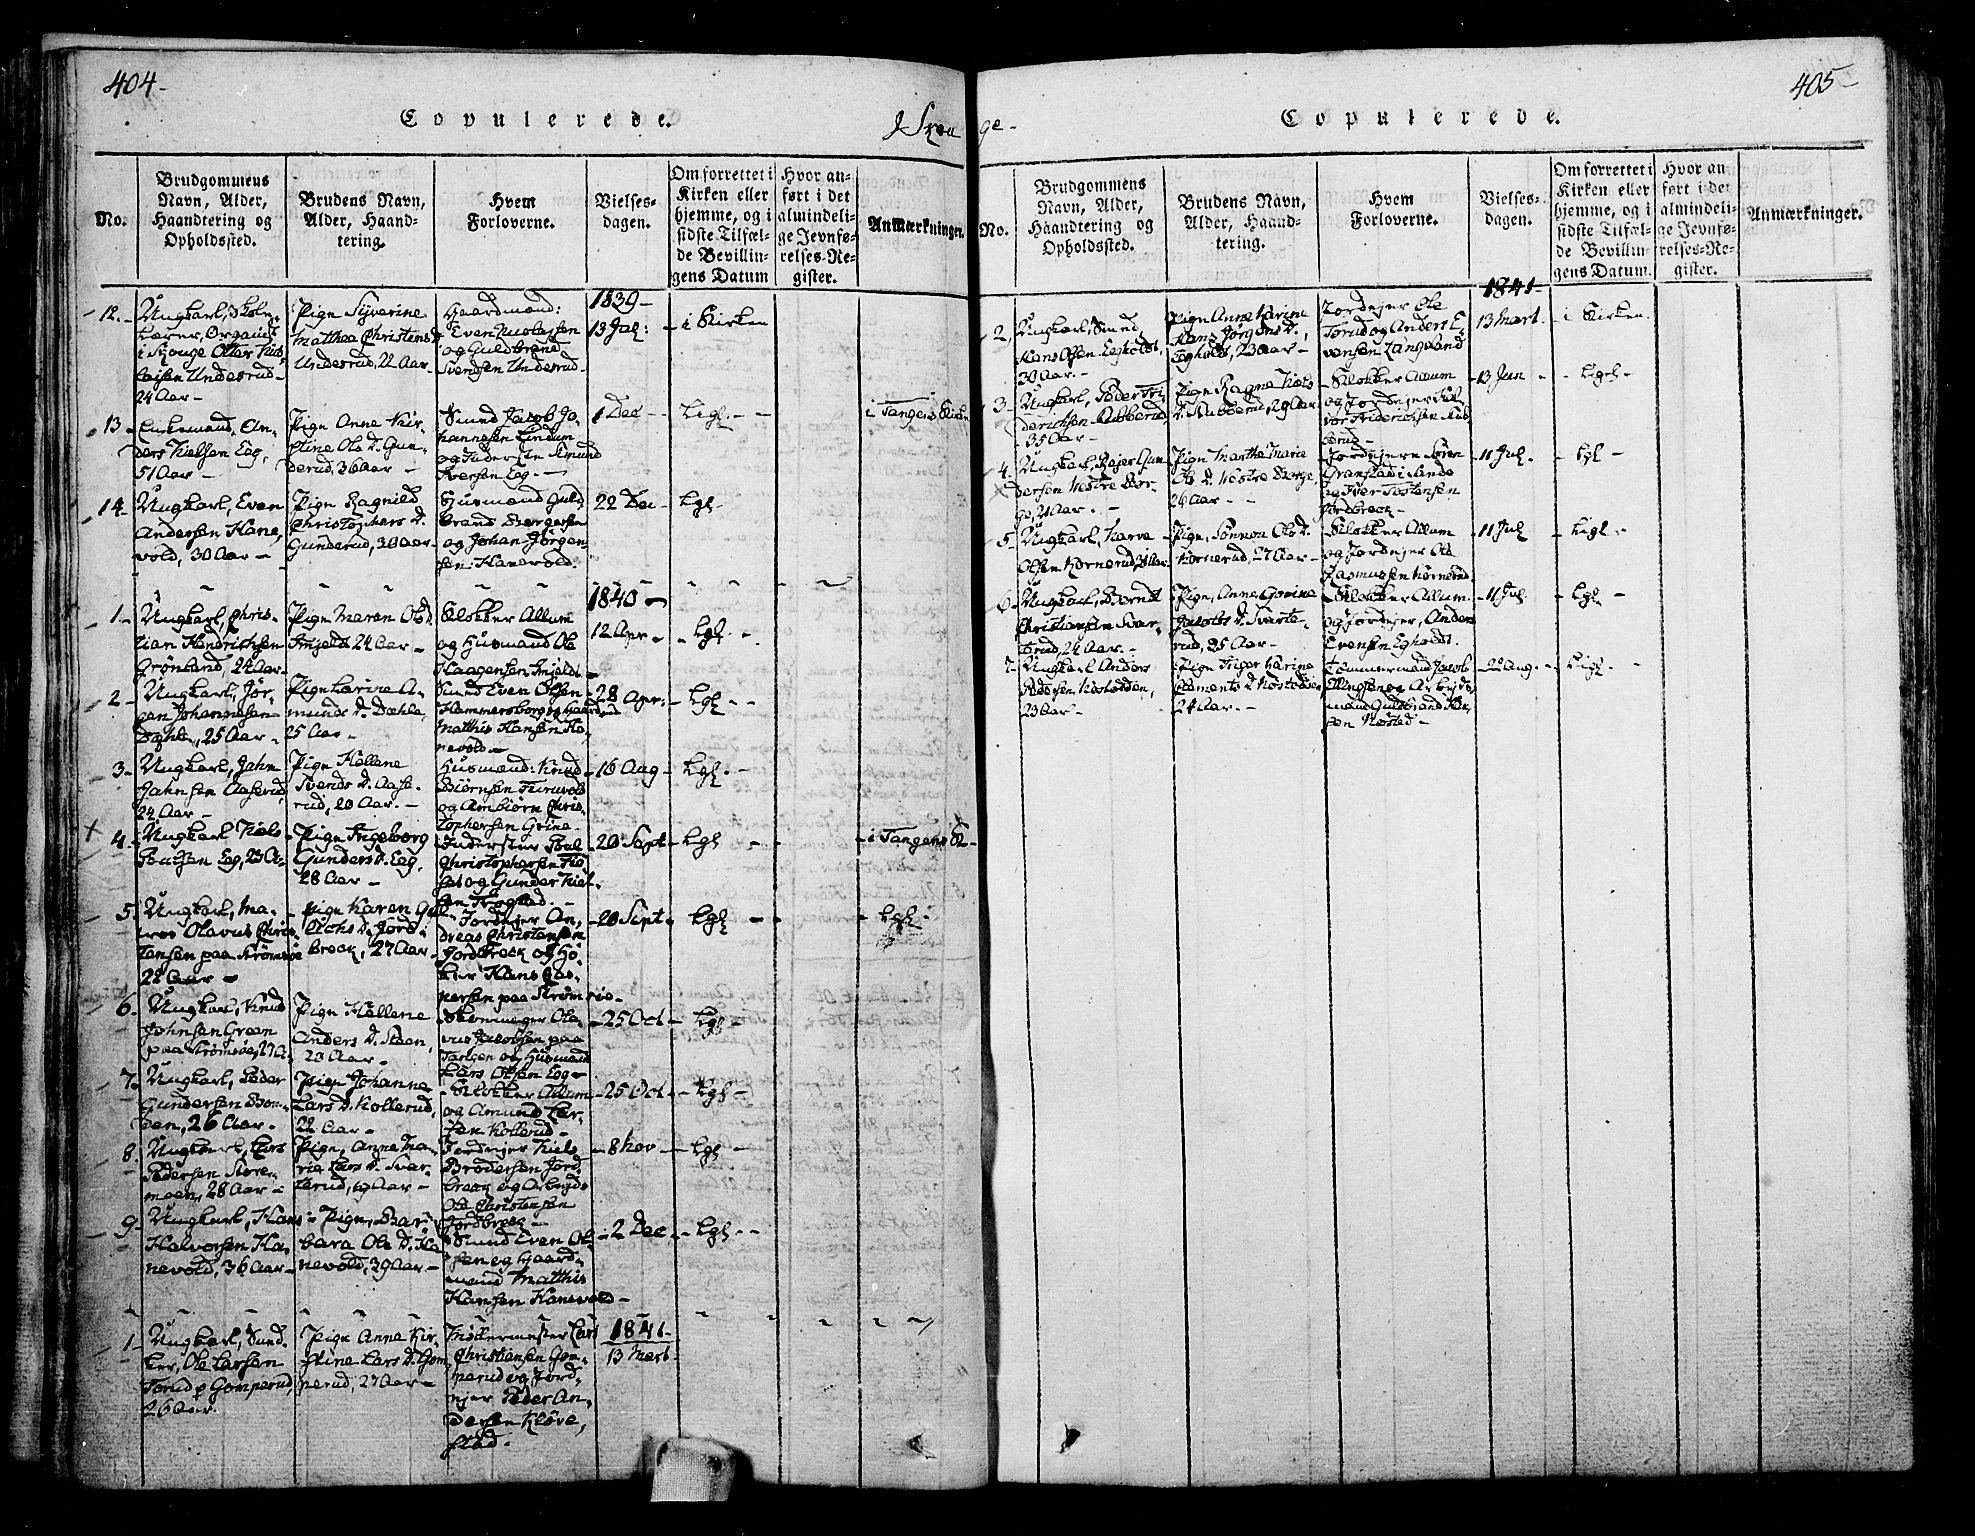 404-
Copulerede.
No.
Brudgommens
Navn, Alder,
Haandtering og
Opholdssted.
Brudens Navn,
Alder, Haand-
tering.
Hvem
Forloverne.
Vielses-
dagen.
Om forrettet i
Kirken eller
hjemme, og i
sidste Tilfæl-
de Bevillin-
gens Datum
Hvor an-
ført i det
almindeli-
ge Jevnfø-
relses-Re-
gister.
Anmærkninger.
12.-
Ungkarl, Skole-
lærer, Organist
i Skouge Otter
Underud-
24 Aar-
Pige Syverine
Mathea Christens D.
Underud, 22 Aar-
Gaardmænd:
Even Nicolaysen
og Guldbrand
Svendsen Underud-
1839-
13 Jul:
- i Kirken
13-
Enkemand, An-
ders Nielsen Eeg,
51 Aar-
Pige Anne Kir-
stine Ols D. Gun-
derud, 36 Aar-
Smed Jacob Jo-
hannesen Lindum
og Inderste Amund
Iversen Eeg.-
1 Dec-
Ligl.-
i Tangens Kirke
14-
Ungkarl, Even
Andersen Hane,
vold, 30 Aar-
Pige Ragnild
Christophers D.
Gunderud, 30 Aar-
Huusmænd Guld-
brand
og Johan Jørgen-
sen: Hanevold:
22 Dec-
Lgl-
1840-
1.-
Ungkarl, Chris-
tian Hendrichsen
Grønland, 22 Aar-
Pige Maren Ols D.
24 Aar-
Klokker Allum
og Huusmand Ole
Haagensen
12 Apr-
Lgl.-
2-
Ungkarl, Jør-
gen Johannesen
25 Aar-
Pige Karine A-
munds D. Dæhle,
25 Aar-
Smed Even Olsen
Hammersborg og Gaard
Matthis Hansen Ha-
nevold-
28 Apr:-
Lgl-
3-
Ungkarl, John
Johnsen Aaserud
24 Aar-
Pige Hellene
Svends D. Aase-
rud, 20 Aar.-
Huusmænd: Knud
Biørnsen
og Ambiørn Chris-
tophersen Grine-
16 Aug-
Lgl.-
4-
Ungkarl Niels
Paulsen Eeg, 23 A-
Pige Ingeborg
Gunders D. Eeg,
28 Aar-
Inderster Poul
Christophersen
og Gunder Niel-
sen
20 Sept-
Lgl-
- i Tangens K-
5-
Ungkarl, Ma-
Olavus Chris-
tensen paa Strømsøe
22 Aar-
Pige Karen
D. Jord-
broek, 27 Aar-
Jordejer An-
dreas Christensen
Jordbroek og Hø-
ker Hans Cas-
persen paa Strømsøe-
20 Sept-
Lgl-
Lgl.-
6-
Ungkarl, Knud
Johnsen Green
paa Strømsøe, 27 A-
Pige Hellene
Anders D. Steen,
20 Aar-
Skomager Ola-
vus Jacobsen paa
Tangen og Huusmand
Lars Olsen Eeg-
25 Oct-
Lgl-
7-
Ungkarl, Peder
Gundersen
26 Aar-
Pige Johanne
Lars D. Kollerud,
22 Aar-
Klokker Allum
og Amund Lar-
sen Kollerud-
25 Oct-
Lgl-
8-
Ungkarl, Lars
Pedersen Store-
moen, 28 Aar-
Pige, Anne Ma-
rie Lars D. Svar-
terud, 19 Aar-
Jordejer Niels
Brodersen Jord-
broek og Arbejds
Ole Christensen
Jordbroek-
- 8 Nov-
Lgl-
9-
Ungkarl, Hans
Halvorsen Ha-
nevold, 36 Aar-
Pige, Bar-
bara Ols D. Ha-
nevold, 39 Aar-
Smed Even Ol-
sen og Gaard-
mand Matthis
Hansen Hanevold-
2 Dec-
Lgl-
1-
Ungkarl, Sned-
ker, Ole Larsen
Torud p Gomperud,
26 Aar.
Pige Anne Kir-
stine Lars D. Gom-
perud, 27 Aar-
Christiansen Gom-
perud og Jord-
ejer Peder An-
dersen Kløve,
stad.
1841-
13 Mart-
405-
Copulerede.
No.
Brudgommens
Navn, Alder,
Haandtering og
Opholdssted.
Brudens Navn,
Alder, Haand-
tering.
Hvem
Forloverne.
Vielses-
dagen.
Om forrettet i
Kirken eller
hjemme, og i
sidste Tilfæl-
de Bevillin-
gens Datum.
Hvor an-
ført i det
almindeli-
ge Jevnfø-
relses-Re-
gister.
Anmærkninger.
1841-
2,
Ungkarl, Smed
Hans Olsen Egholdt,
30 Aar-
Pige Anne Karine
Hans Jørgens D.
Egholdt, 23 Aar-
Jordejer Ole
Torud og Anders E-
vensen Langeland
13 Mart-
- i Kirken
3-
Ungkarl, Peder Fri-
derichsen Rubberud
35 Aar-
Pige Ragne Niels
D. 29 Aar
Klokker Allum
og Jordejer Hal-
vor Friderichsen Rub-
berud-
13 Jun-
Ligl-
4-
Ungkarl, Rejer Gun-
dersen Westre Bor-
ge, 21 Aar.-
Pige Marthe Marie
Ols D. Westre Borge
26 Aar-
Jordejerne Søren
Granstad i Sande
og Iver Tostensen
Jordbroek-
11 Jul.-
Lgl-
5-
Ungkarl, Narve
Olsen Kornerud,
Pige, Ols D.
Kornerud, 27 Aar-
Klokker Allum
og Jordejer Ole
Rasmussen Kornerud
11 Jul
Ligl-
6-
Ungkarl, Berndt
Christiansen Svar-
terud, 24 Aar.-
Pige, Anne Govine
Jacobs D. Svarte-
rud, 35 Aar-
Klokker Allum
og Jordejer, Anders
Evensen Egholdt.
11 Jul
Lgl-
7-
Ungkarl Anders
Pedersen Nøstødden,
23 Aar-
Pige Karine
Clements D. Nøstødden
24 Aar.-
Tømmermand Jacob
Ellingsen og Arbejds-
mand Guldbrand
Nøsted-
22 Aug.-
Ligl-